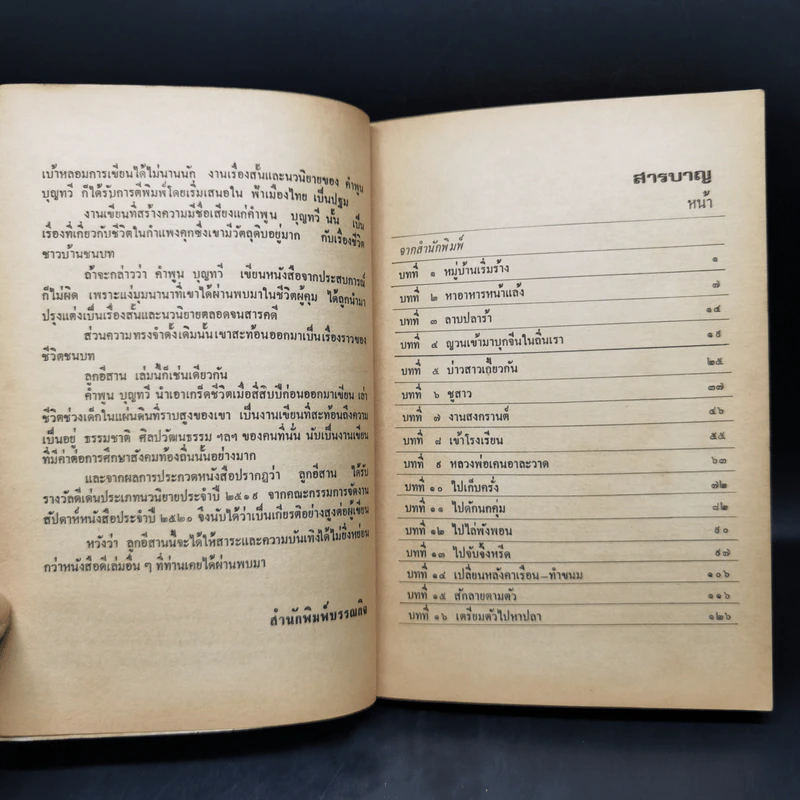 เบ้าหลอมการเขียนได้ไม่นานนัก งานเรื่องสั้นและนวนิยายของ คำพูน
บุญทวี ก็ได้รับการตีพิมพ์โดยเริ่มเสนอใน ฟ้าเมืองไทย เป็นปฐม
งานเขียนที่สร้างความมีชื่อเสียงแก่คำพูน บุญทวี นั้น เป็น
เรื่องที่เกี่ยวกับชีวิตในกำแพงคุกซึ่งเขามีวัตถุดิบอยู่มาก กับเรื่องชีวิต
ชาวบ้านชนบท
ถ้าจะกล่าวว่า คำพูน บุญทวี เขียนหนังสือจากประสบการณ์
ก็ไม่ผิด เพราะแง่มุมนานาที่เขาได้ผ่านพบมาในชีวิตผู้คุม ได้ถูกนำมา
ปรุงแต่งเป็นเรื่องสั้นและนวนิยายตลอดจนสารคดี
ส่วนความทรงจำดั้งเดิมนั้นเขาสะท้อนออกมาเป็นเรื่องราวของ
ชีวิตชนบท
ลูกอีสาน เล่มนี้ก็เช่นเดียวกัน
คำพูน บุญทวี นำเอาเกร็ดชีวิตเมื่อสี่สิบปีก่อนออกมาเขียน เล่า
ชีวิตช่วงเด็กในแผ่นดินที่ราบสูงของเขา เป็นงานเขียนที่สะท้อนถึงความ
เป็นอยู่ ธรรมชาติ ศิลปวัฒนธรรม ฯลฯ ของคนที่นั่น นับเป็นงานเขียน
ที่มีค่าต่อการศึกษาสังคมท้องถิ่นนั้นอย่างมาก
และจากผลการประกวดหนังสือปรากฏว่า ลูกอีสาน ได้รับ
รางวัลดีเด่นประเภทนวนิยายประจำปี ๒๕๑๙ จากคณะกรรมการจัดงาน
สัปดาห์หนังสือประจำปี ๒๕๒๐ จึงนับได้ว่าเป็นเกียรติอย่างสูงต่อผู้เขียน
หวังว่า ลูกอีสานนี้จะได้ให้สาระและความบันเทิงได้ไม่ยิ่งหย่อน
กว่าหนังสือดีเล่มอื่น ๆ ที่ท่านเคยได้ผ่านพบมา
สำนักพิมพ์บรรณกิจ
สารบาญ
หน้า
จากสำนักพิมพ์
บทที่ ๑ หมู่บ้านเริ่มร้าง ๑
บทที่ ๒ หาอาหารหน้าแล้ง ๗
บทที่ ๓ ลาบปลาร้า ๑๔
บทที่ ๔ ญวนเข้ามาบุกจีนในถิ่นเรา ๑๙
บทที่ ๕ บ่าวสาวเกี้ยวกัน ๒๕
บทที่ ๖ ชู้สาว ๓๗
บทที่ ๗ งานสงกรานต์ ๔๖
บทที่ ๘ เข้าโรงเรียน ๕๕
บทที่ ๙ หลวงพ่อเคนอาละวาด ๖๓
บทที่ ๑๐ ไปเก็บครั่ง ๗๒
บทที่ ๑๑ ไปดักนกคุ่ม ๘๒
บทที่ ๑๒ ไปไล่พังพอน ๙๐
บทที่ ๑๓ ไปจับจิ้งหรีด ๙๗
บทที่ ๑๔ เปลี่ยนหลังคาเรือน–ทำขนม ๑๐๖
บทที่ ๑๕ สักลายตามตัว ๑๑๖
บทที่ ๑๖ เตรียมตัวไปหาปลา ๑๒๖